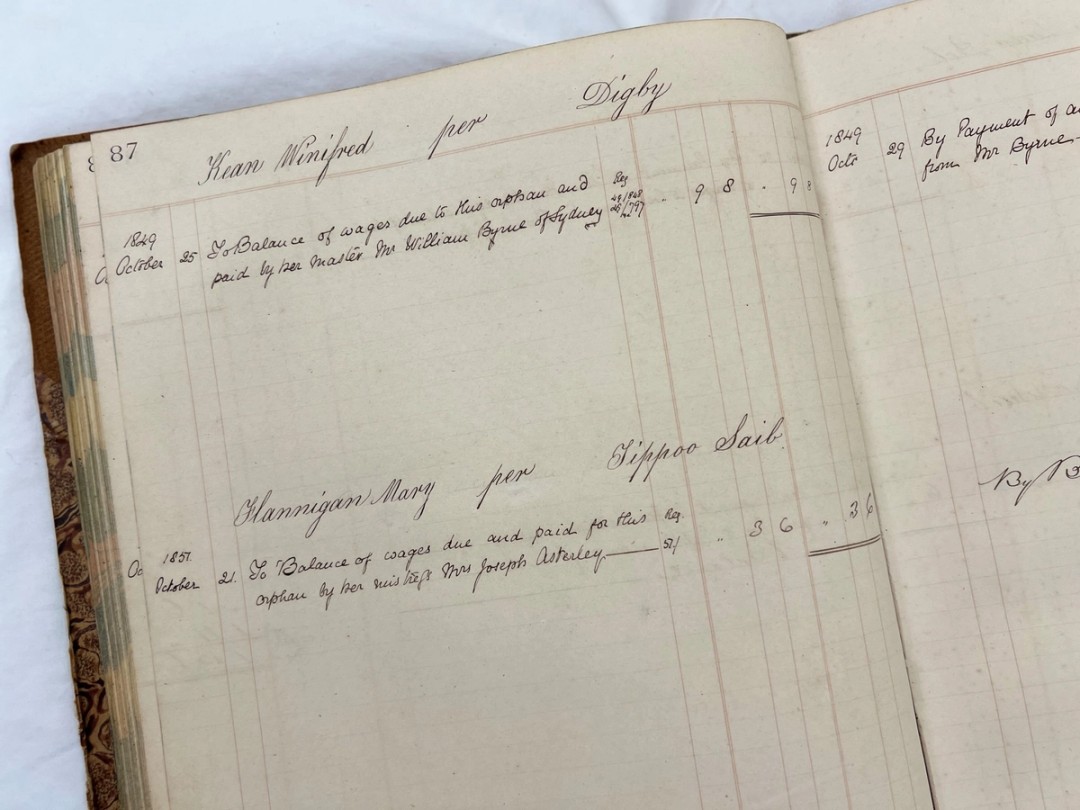 87
Kean Winifred per Digby
1849
October 25 To Balance of wages due to this orphan and Reg
paid by her master Mr William Byrne of Sydney 9 8 . 9 8
Flannigan Mary per Tippoo Saib
1851
October 21. To Balance of wages due and paid for this Reg.
orphan by her mistress Mrs Joseph Asterley 3 6 " 3 6
1849
Octr 29 By Payment of
from Mr Byrne
By